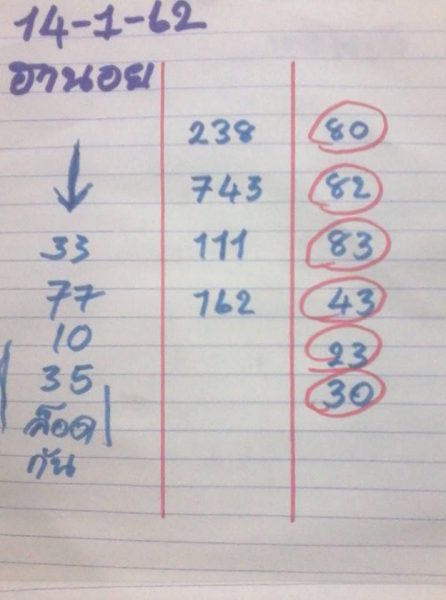 14-1-62
ฮานอย
238 80
743 82
33 111 83
77 162 43
10 23
35 30
ล็อด
กัน